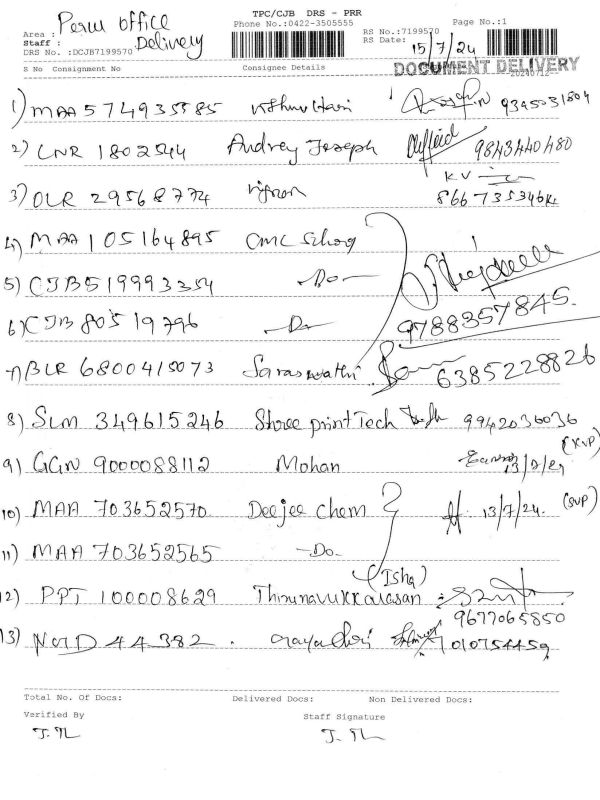 TPC/CJB DRS - PRR
Area : Perur office
Phone No.:0422-3505555
Page No.:1
Staff : Delivery
RS No.:7199570
RS Date: 15/7/24
DRS No. :DCJB7199570
DOCUMENT DELIVERY
S No Consignment No Consignee Details
1) MAA 574935585 9345031804
2) CNR 1802544 Audrey Joseph 9843440480
3) OLR 29568774 KV
4) MAA 105164895 CMC School
5) CJB 519993354 -Do-
6) CJB 80519796 -Do- 9788357845.
7) BLR 6800415073 Saraswathi 6385228826
8) SLM 349615246 Shree print Tech 9942036036
(KVP)
9) GGN 9000088112 Mohan
10) MAA 703652570 Deejee chem 13/7/24. (SVP)
11) MAA 703652565 -Do-
(Isha)
12) PPT 100008629 Thirunavukkarasan
9677065850
13) 44382
Total No. Of Docs: Delivered Docs: Non Delivered Docs:
Verified By Staff Signature